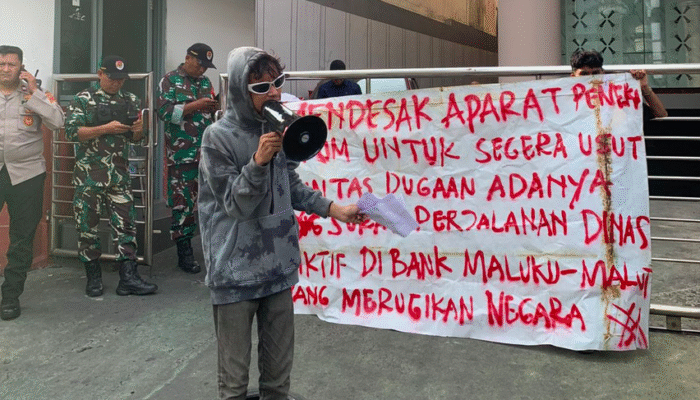 MENDESAK APARAT PENEK
UM UNTUK SEGERA USUT
NTAS DUGAAN ADANYA
PERJALANAN DINAS
KTIF DI BANK MALUKU-MALUT
ANG MERUGIKAN NEGARA